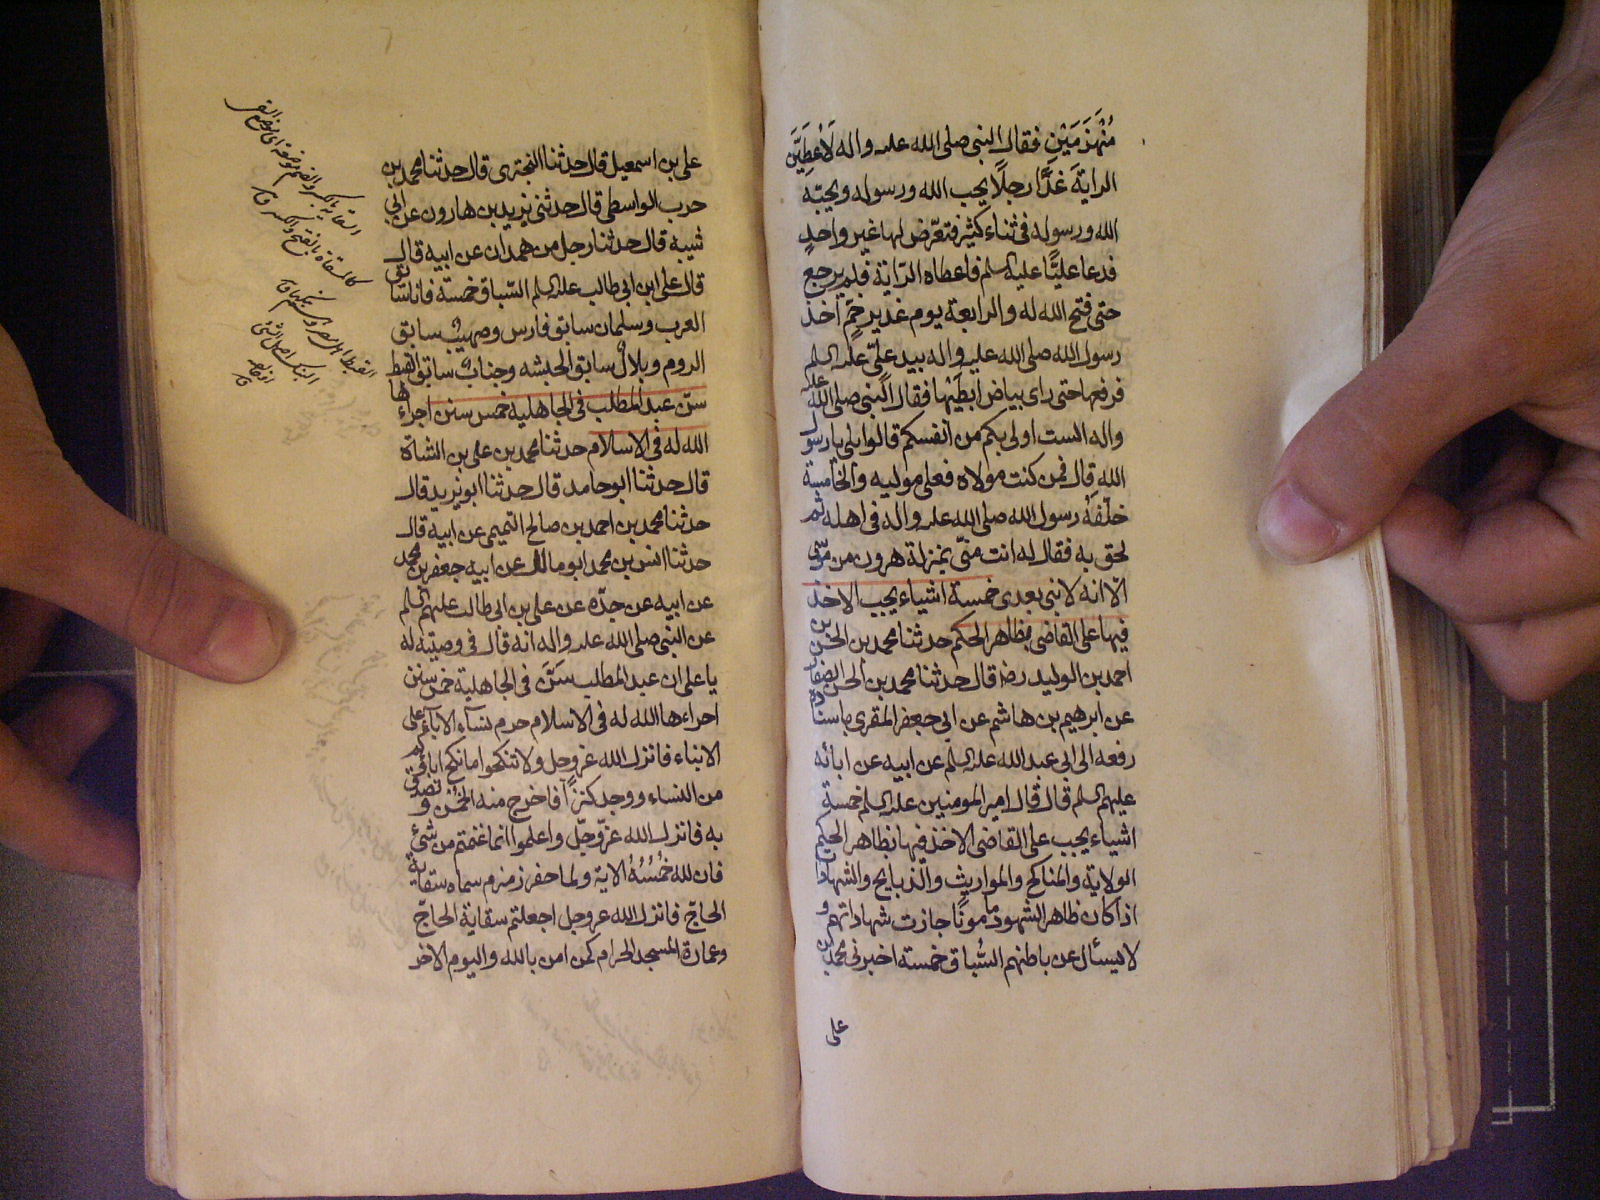 مُنْهَزِمَيْنِ فقال النبى صلى الله عليه واله لَاُعْطِيَنَّ
الراية غدًا رجلًا يحب الله ورسوله ويحبّه
الله ورسوله فى ثناء كثير فتعرّض لها غير واحدٍ
فدعا عليًّا عليه السلم فاعطاه الرّاية فلم يرجع
حتى فتح الله له والرابعة يوم غدير خمّ اخذ
رسول الله صلى الله عليه واله بيد علىّ عليه السلم
فرفعها حتى راى بياض ابطَيْهِما فقال النبى صلى الله عليه
واله الست اولى بكم من انفسكم قالوا بلى يا رسول
الله قال فمن كنت مولاه فعلى موليه والخامسة
خلّفهُ رسول الله صلى الله عليه واله فى اهله ثم
لحق به فقال له انت منّى بمنزلة هرون من موسى
الّا انه لا نبى بعدى خمسة اشياء يجب الاخذ
فيها على القاضى بظاهر الحكم حدثنا محمد بن الحسن بن
احمد بن الوليد رضه قال حدثنا محمد بن الحسن الصفار
عن ابرهيم بن هاشم عن ابى جعفر المقرى باسناده
رفعه الى ابى عبد الله عليه السلم عن ابيه عن ابائه
عليهم السلم قال قال امير المومنين عليه السلم خمسة
اشياء يجب على القاضى الاخذ فيها بظاهر الحكم
الولاية والمناكح والمواريث والذبايح والشهادات
اذا كان ظاهر الشهود مامونًا جازت شهاداتهم و
لا يسأل عن باطنهم السُّباق خمسة اخبرنى محمد بن
على
على بن اسمعيل قال حدثنا البخترى قال حدثنا محمد بن
حرب الواسطى قال حدثنى يزيد بن هارون عن ابى
شيبة قال حدثنا رجل من همدان عن ابيه قال
قال على ابن ابى طالب عليه السلم السّباق خمسة فانا سابق
العرب وسلمان سابق فارس وصهيب سابق
الروم وبلال سابق الحبشه وجناب سابق القبط
سنّ عبد المطلب فى الجاهلية خمس سنن اجراها
الله له فى الاسلام حدثنا محمد بن على بن الشاة
قال حدثنا ابو حامد قال حدثنا ابو يزيد قال
حدثنا محمد بن احمد بن صالح التميمى عن ابيه قال
حدثنا انس بن محمد ابو مالك عن ابيه جعفر بن محمد
عن ابيه عن جدّه عن على بن ابى طالب عليهم السلم
عن النبى صلى الله عليه واله انه قال فى وصيته له
يا على ان عبد المطلب سَنَّ فى الجاهلية خمس سنن
اجراءها الله له فى الاسلام حرم نساء الاباء على
الابناء فانزل الله عز وجل ولا تنكحوا ما نكح اباؤكم
من النساء ووجد كنزًا فاخرج منه الخُمْس وتصدق
به فانزل الله عزّوجلّ واعلموا انما غنمتم من شئ
فان لله خُمُسُهُ الاية ولما حفر زمزم سماه سقاية
الحاجّ فانزل الله عز وجل اجعلتم سقاية الحاجّ
وعمارة المسجد الحرام كمن امن بالله واليوم الاخر